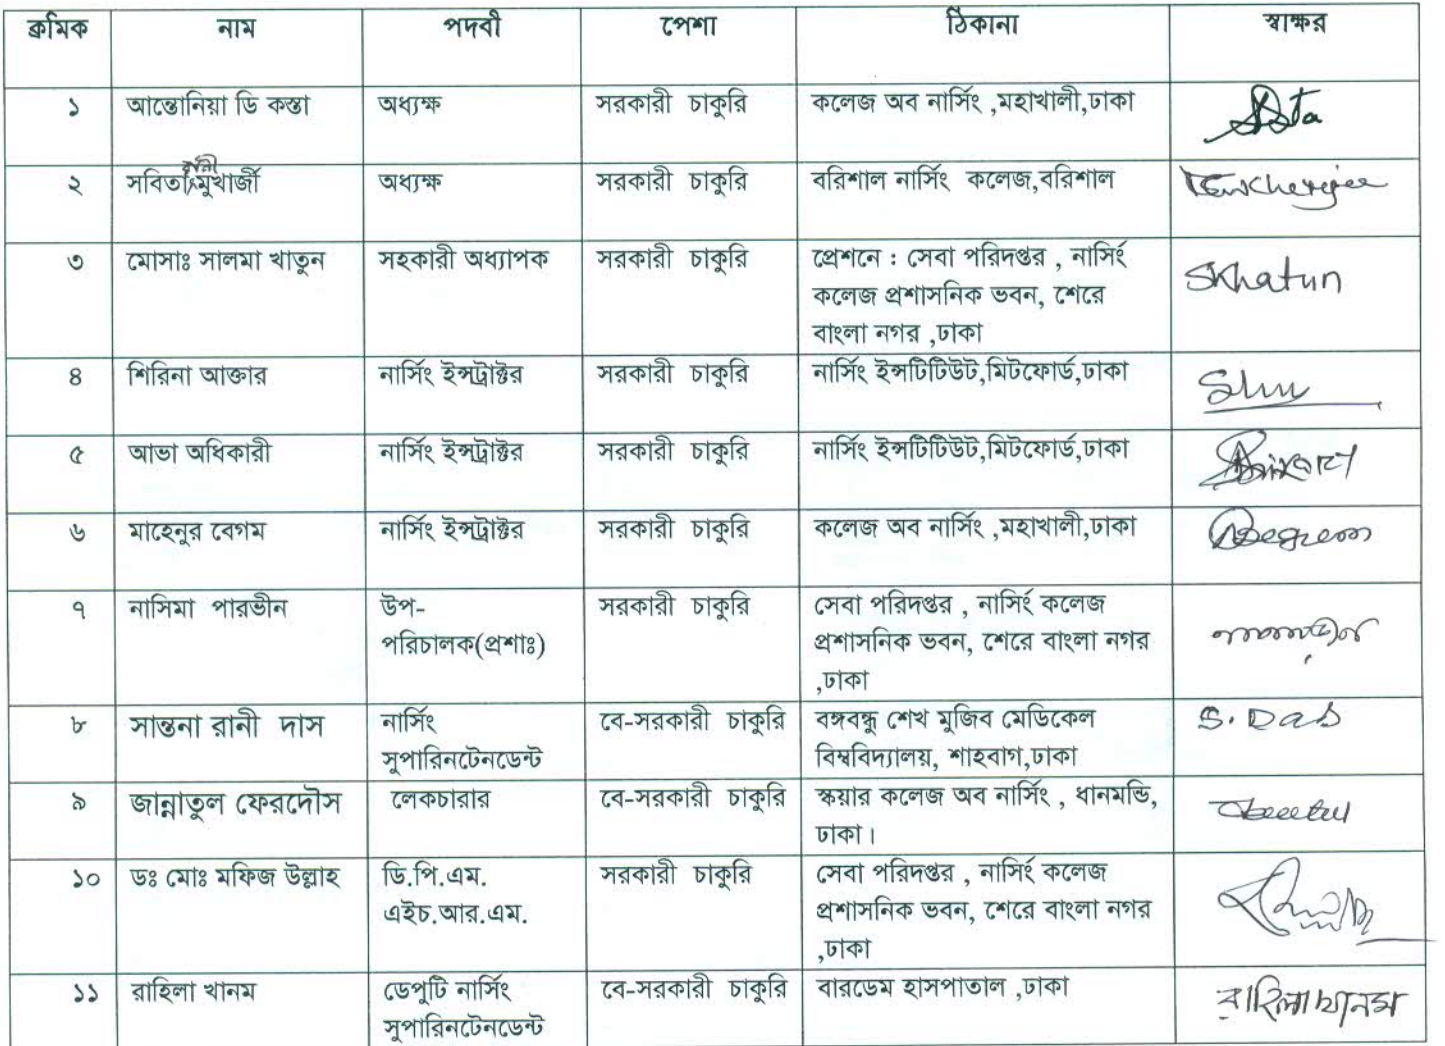 ক্রমিক নাম পদবী পেশা ঠিকানা স্বাক্ষর
১ আন্তোনিয়া ডি কস্তা অধ্যক্ষ সরকারী চাকুরি কলেজ অব নার্সিং ,মহাখালী,ঢাকা
রানী
২ সবিতা মুখার্জী অধ্যক্ষ সরকারী চাকুরি বরিশাল নার্সিং কলেজ,বরিশাল
৩ মোসাঃ সালমা খাতুন সহকারী অধ্যাপক সরকারী চাকুরি প্রেশনে : সেবা পরিদপ্তর , নার্সিং SKhatun
কলেজ প্রশাসনিক ভবন, শেরে
বাংলা নগর ,ঢাকা
৪ শিরিনা আক্তার নার্সিং ইন্সট্রাক্টর সরকারী চাকুরি নার্সিং ইন্সটিটিউট,মিটফোর্ড,ঢাকা
৫ আভা অধিকারী নার্সিং ইন্সট্রাক্টর সরকারী চাকুরি নার্সিং ইন্সটিটিউট,মিটফোর্ড,ঢাকা
৬ মাহেনুর বেগম নার্সিং ইন্সট্রাক্টর সরকারী চাকুরি কলেজ অব নার্সিং ,মহাখালী,ঢাকা
৭ নাসিমা পারভীন উপ- সরকারী চাকুরি সেবা পরিদপ্তর , নার্সিং কলেজ
পরিচালক(প্রশাঃ) প্রশাসনিক ভবন, শেরে বাংলা নগর
,ঢাকা
৮ সান্তনা রানী দাস নার্সিং বে-সরকারী চাকুরি বঙ্গবন্ধু শেখ মুজিব মেডিকেল S. Das
সুপারিনটেনডেন্ট বিশ্ববিদ্যালয়, শাহবাগ,ঢাকা
৯ জান্নাতুল ফেরদৌস লেকচারার বে-সরকারী চাকুরি স্কয়ার কলেজ অব নার্সিং , ধানমন্ডি,
ঢাকা।
১০ ডঃ মোঃ মফিজ উল্লাহ ডি.পি.এম. সরকারী চাকুরি সেবা পরিদপ্তর , নার্সিং কলেজ
এইচ.আর.এম. প্রশাসনিক ভবন, শেরে বাংলা নগর
,ঢাকা
১১ রাহিলা খানম ডেপুটি নার্সিং বে-সরকারী চাকুরি বারডেম হাসপাতাল ,ঢাকা রাহিলা খানম
সুপারিনটেনডেন্ট